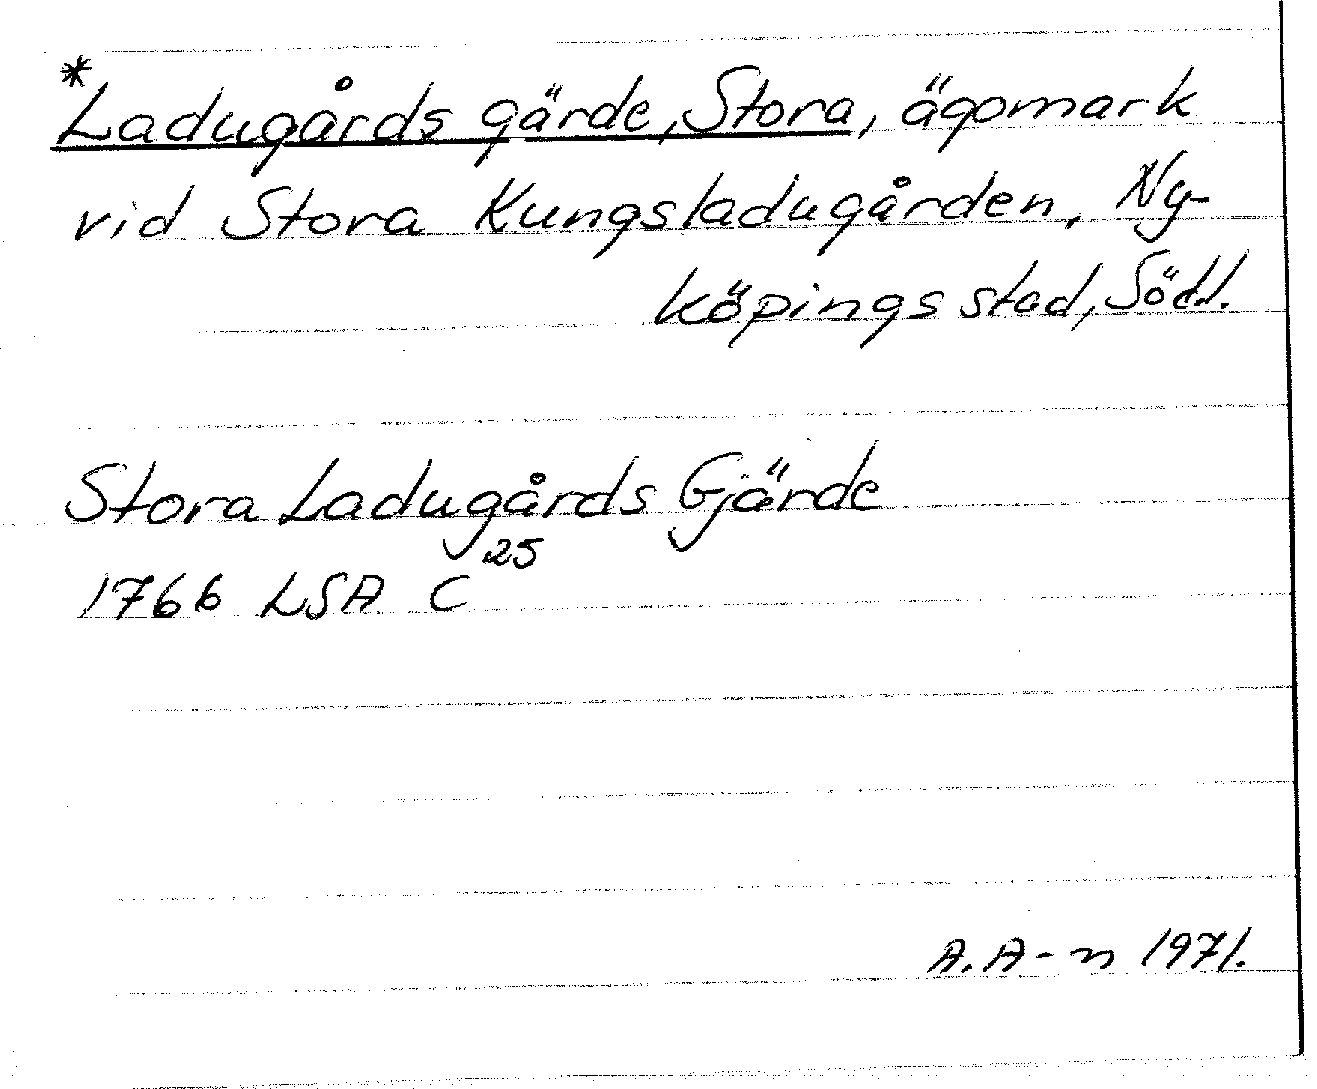 *Ladugårds gärde, Stora, ägomark
vid Stora Kungsladugården, Ny-
köpings stad, Södl.
Stora Ladugårds Gjärde
1766 LSA C 25
A. A-n 1971.